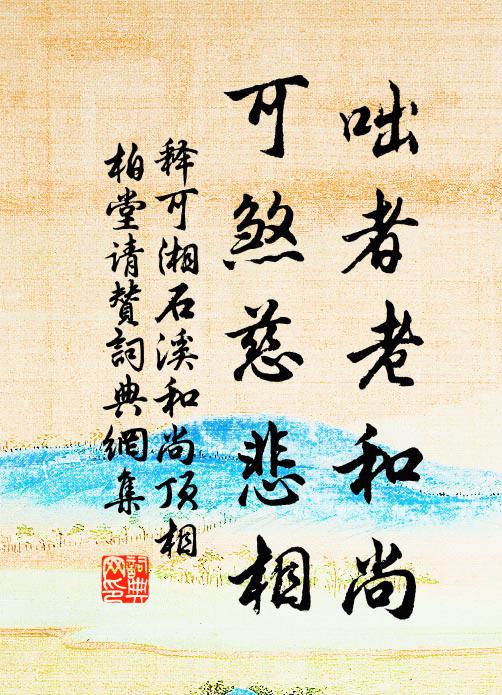 咄者老和尚
可煞慈悲相
释可湘石溪和尚顶相
柏堂请赞词典網集
詞典网印